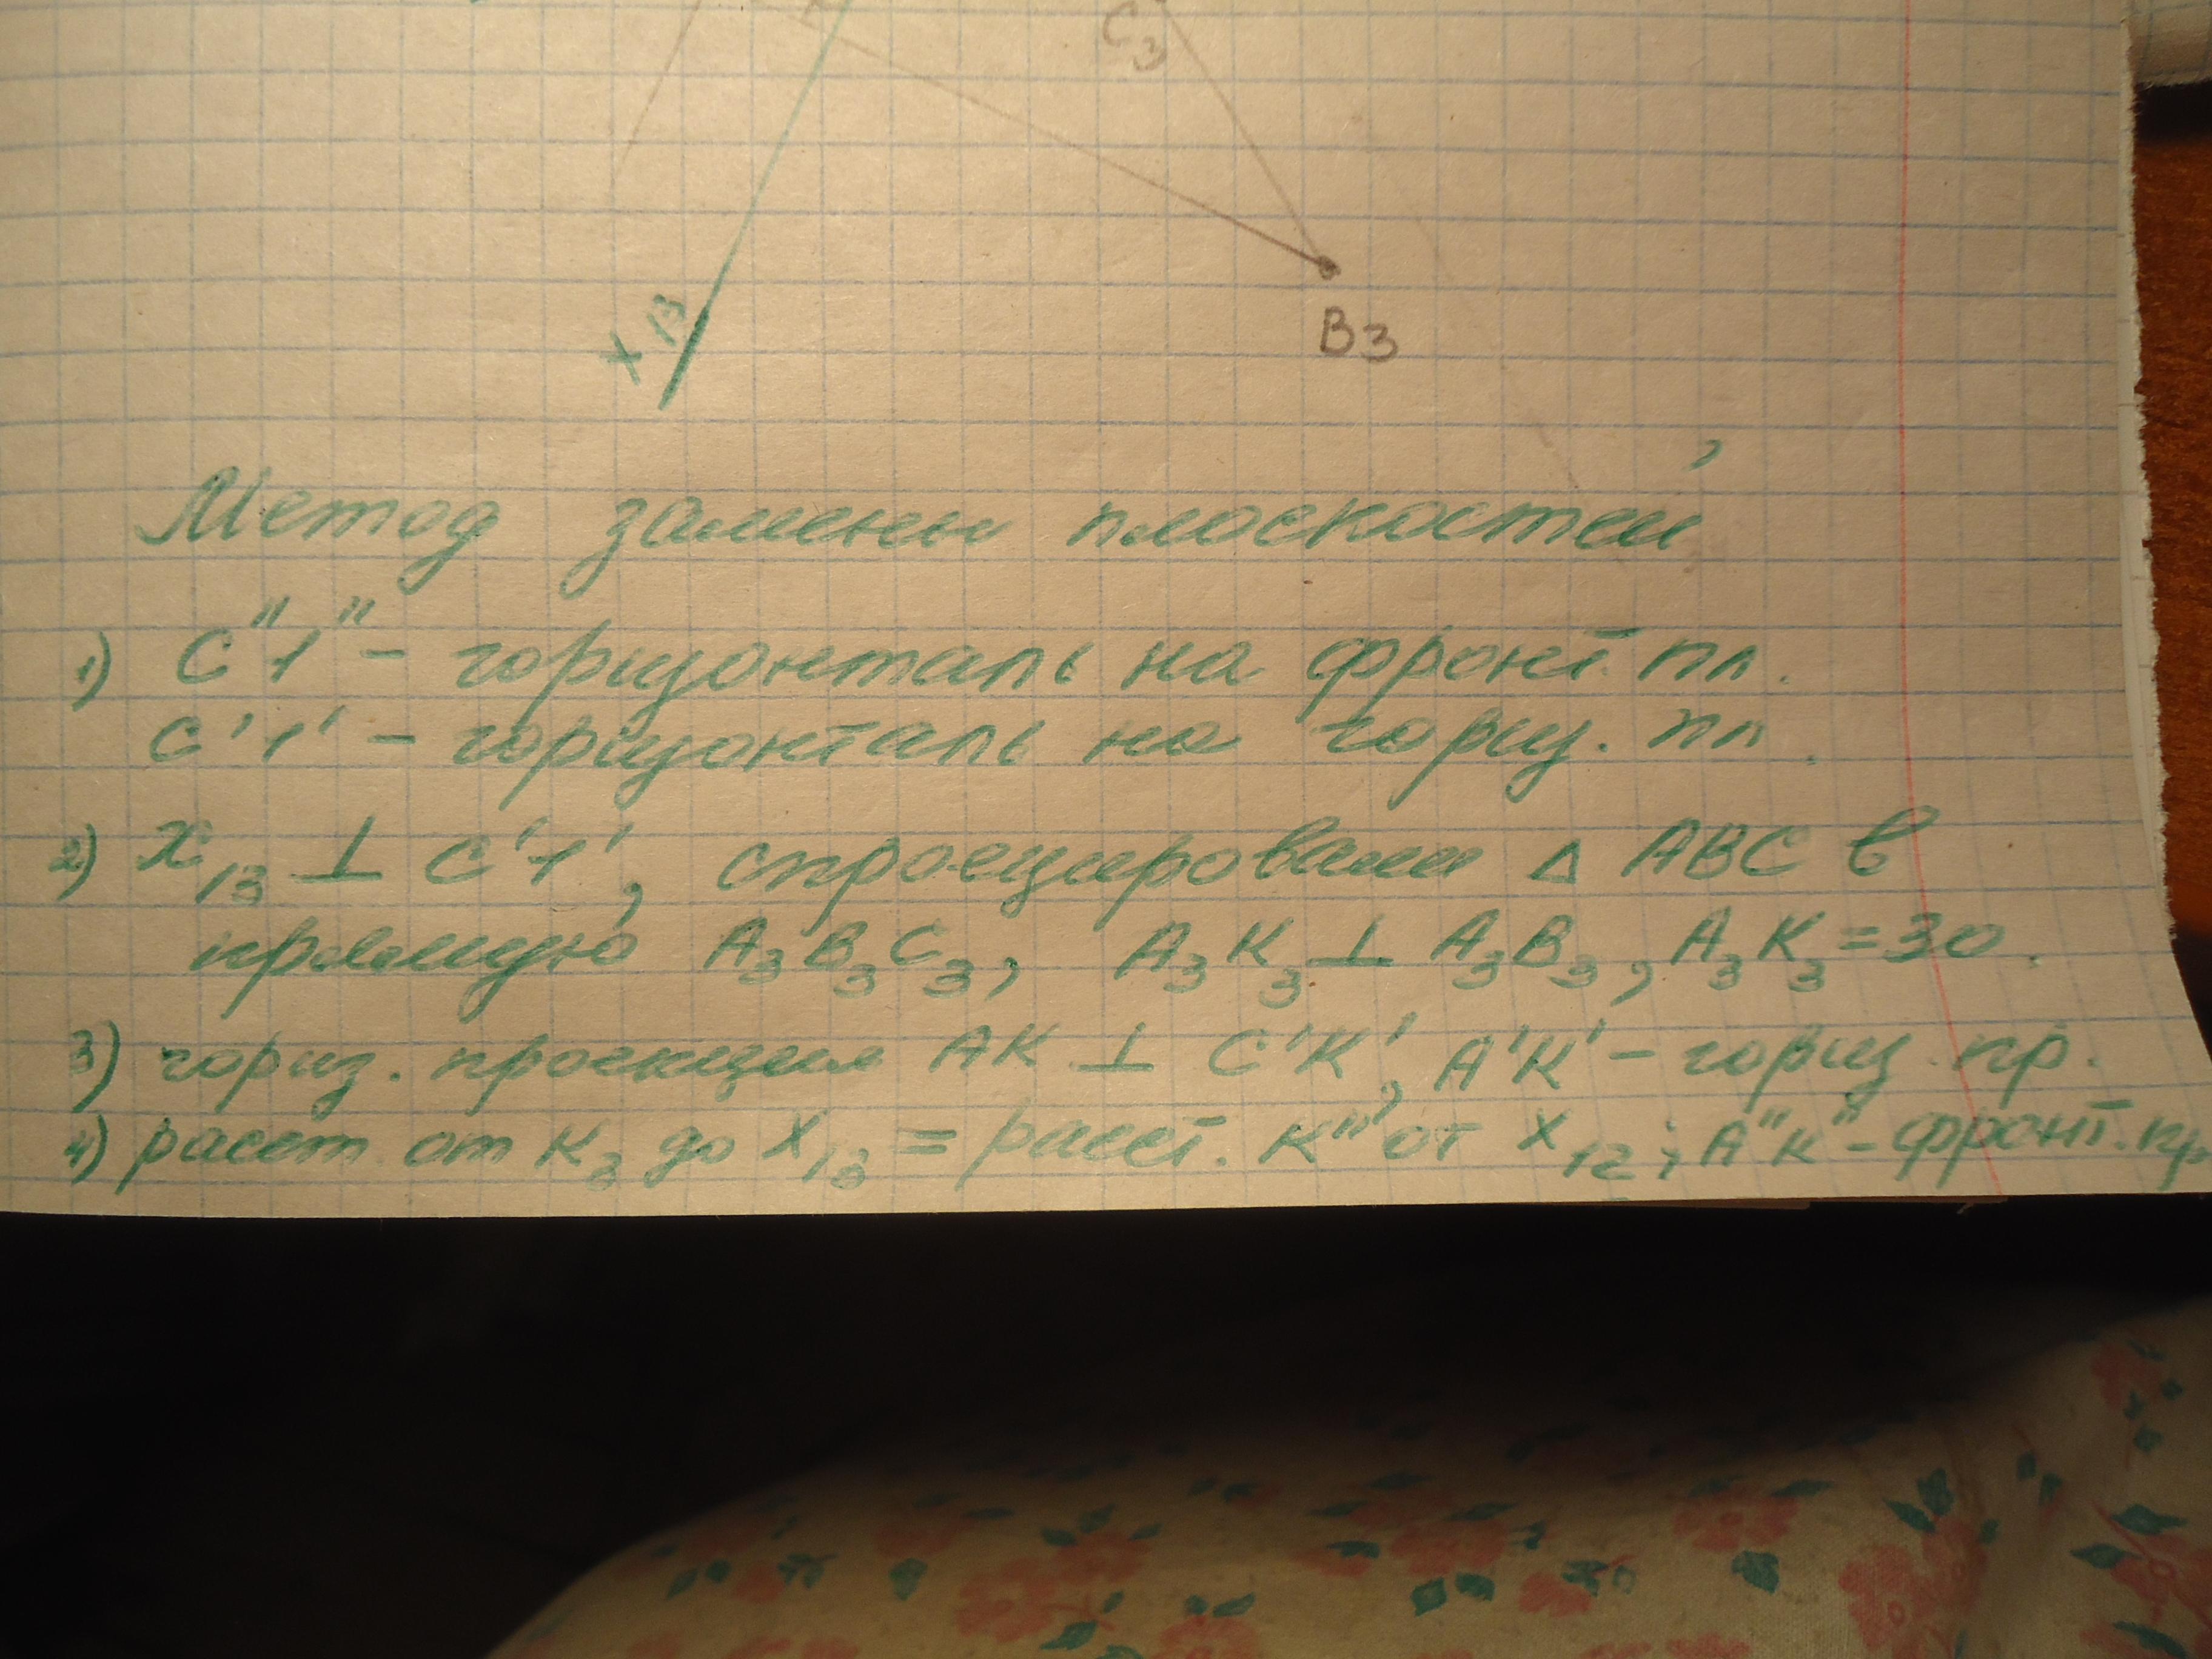 C₃
X₁₃
B₃
Метод замены плоскостей
1) C"1" - горизонталь на фронт. пл.
C'1' - горизонталь на гориз. пл.
2) X₁₃ ⊥ C'1', спроецировали Δ ABC в
прямую A₃B₃C₃, A₃K₃ ⊥ A₃B₃, A₃K₃ = 30.
3) гориз. проекция AK ⊥ C'K', A'K' - гориз. пр.
4) расст. от K₃ до X₁₃ = расст. K" от X₁₂; A"K" - фронт. пр.